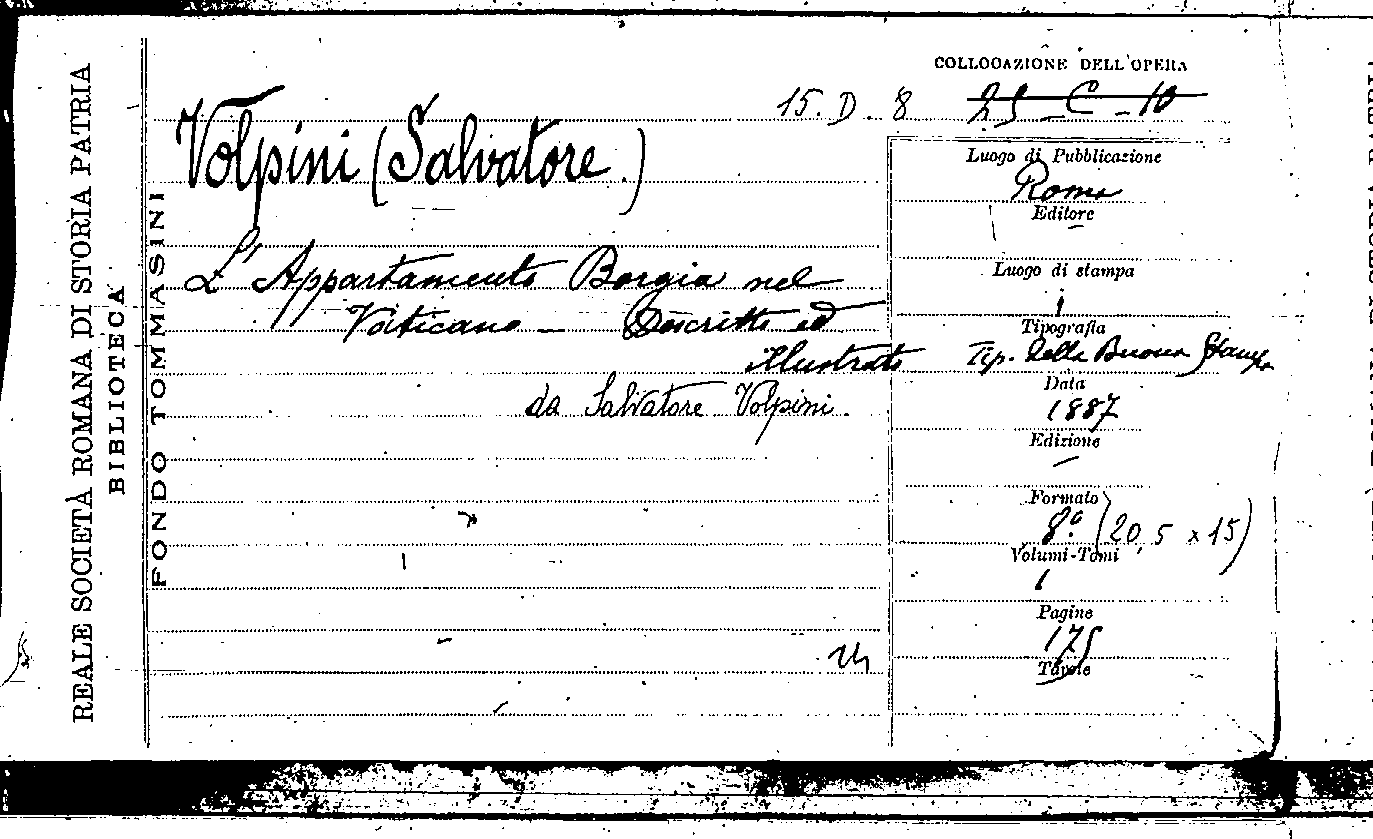 REALE SOCIETÀ ROMANA DI STORIA PATRIA
BIBLIOTECA
FONDO TOMMASINI
COLLOCAZIONE DELL'OPERA
15. D. 8 25 - C - 10
Volpini (Salvatore.)
L'Appartamento Borgia nel
Vaticano — Descritto ed
illustrato
da Salvatore Volpini.
Luogo di Pubblicazione
Roma
Editore
Luogo di stampa
Tipografia
Tip. della Buona Stampa
Data
1887
Edizione
Formato
8º (20,5 x 15)
Volumi-Tomi
1
Pagine
175
Tavole